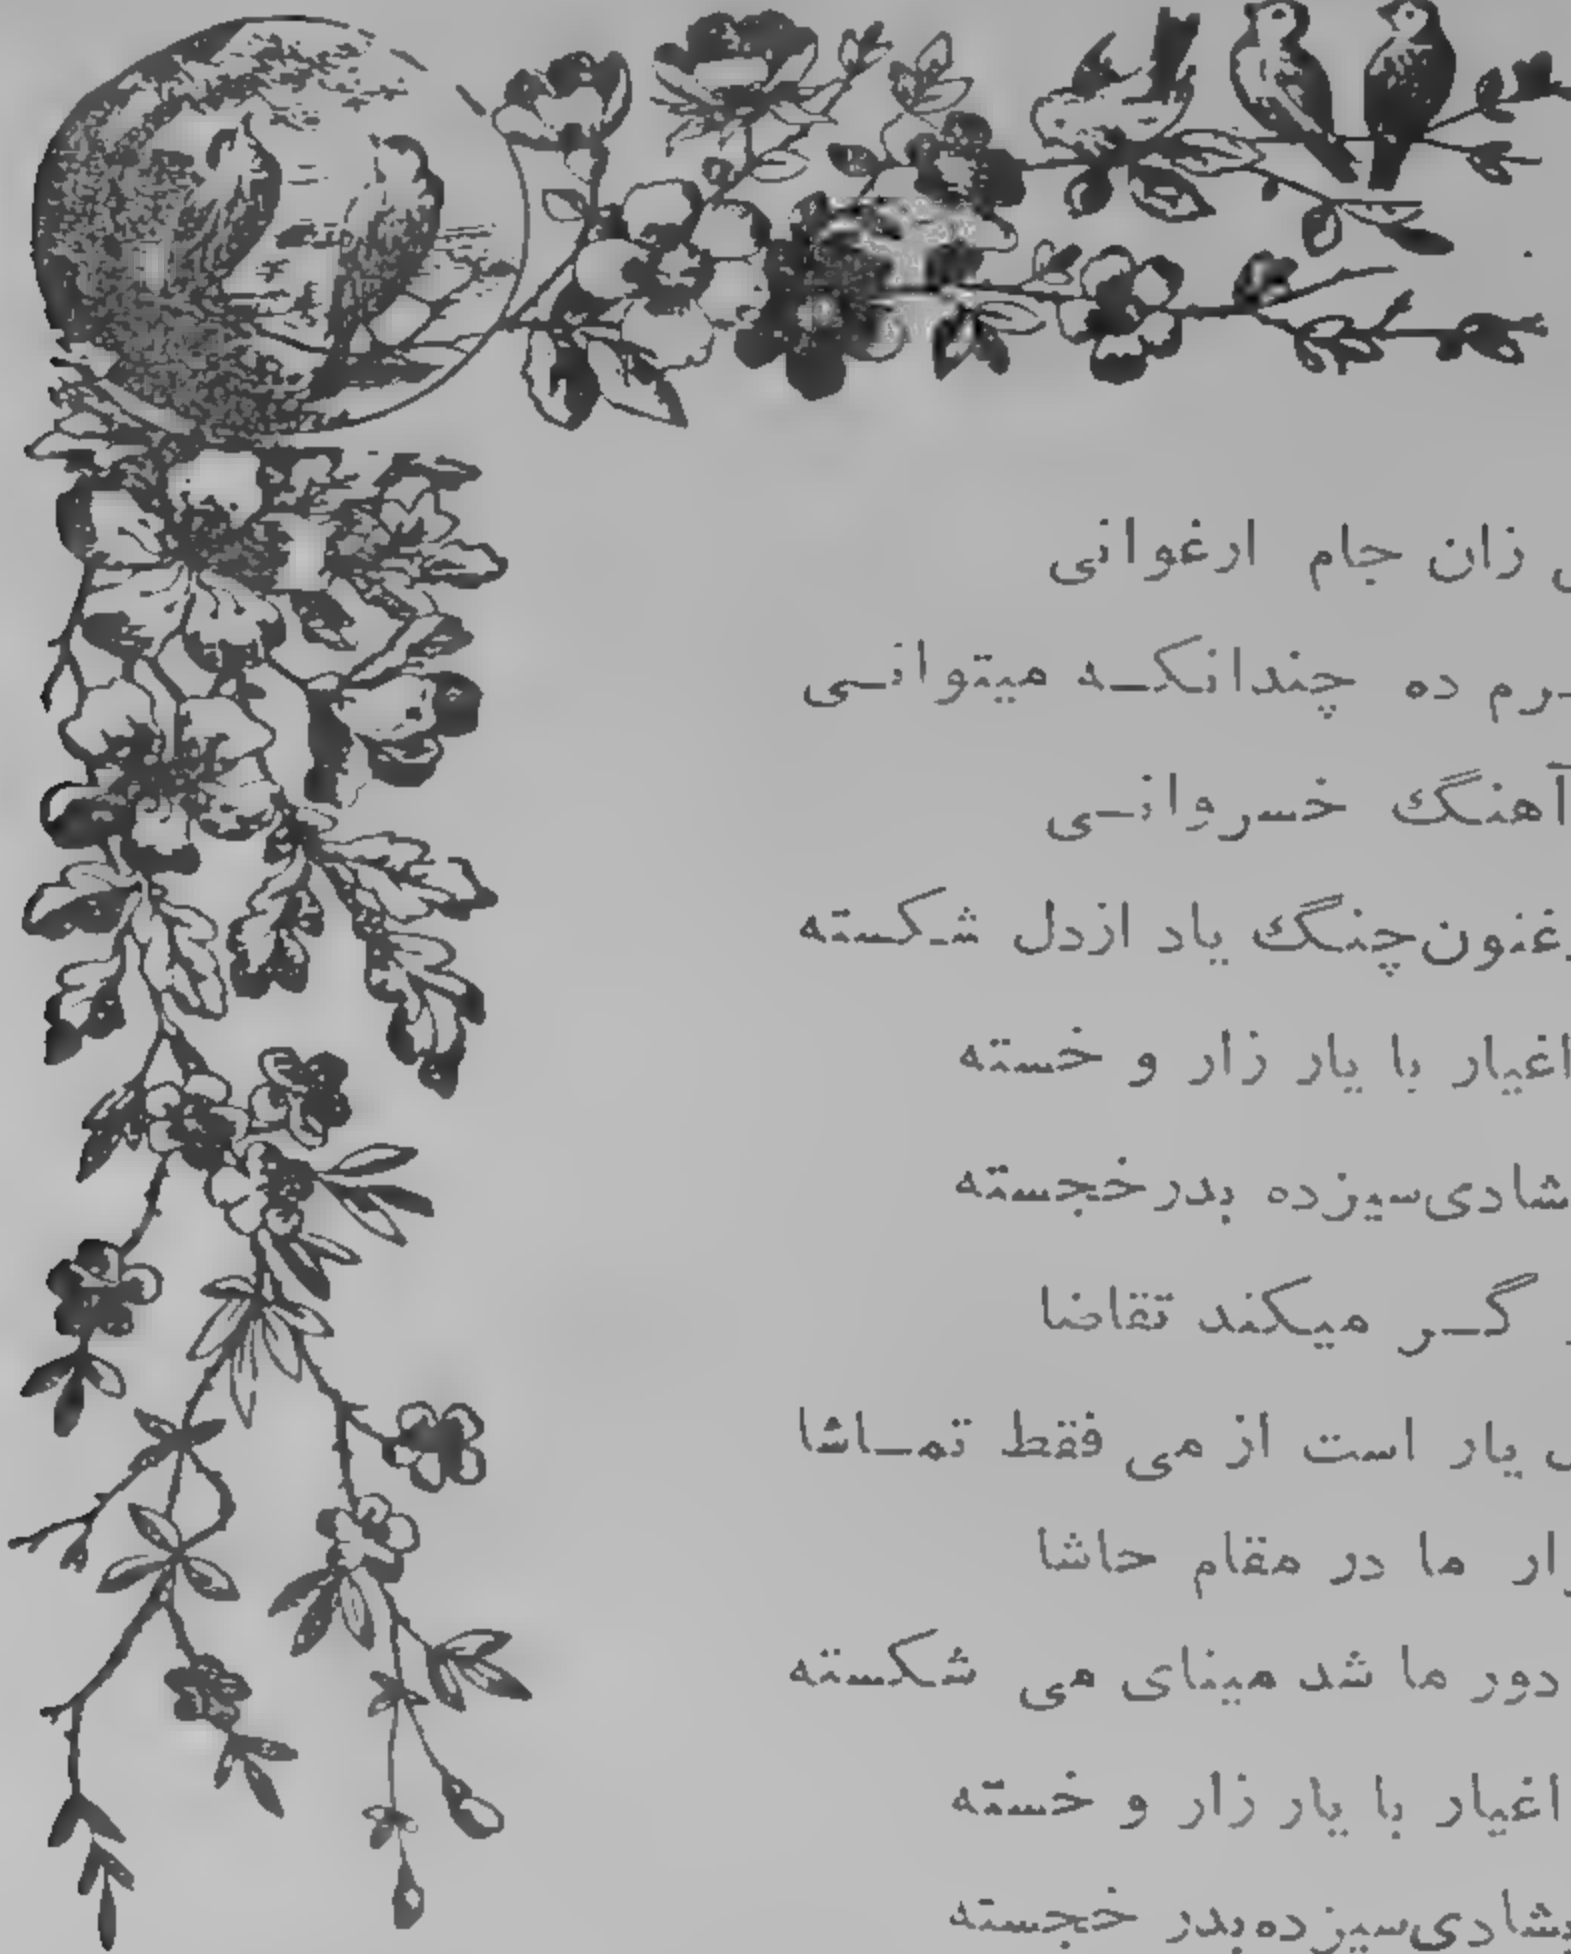 زان جام ارغوانی
ده چندانکه میتوانی
آهنگ خسروانی
چنگ یاد ازدل شکسته
اغیار با یار زار و خسته
شادی سیزده بدر خجسته
گر میکند تقاضا
یار است از می فقط تماشا
ما در مقام حاشا
دور ما شد مینای می شکسته
اغیار با یار زار و خسته
شادی سیزده بدر خجسته